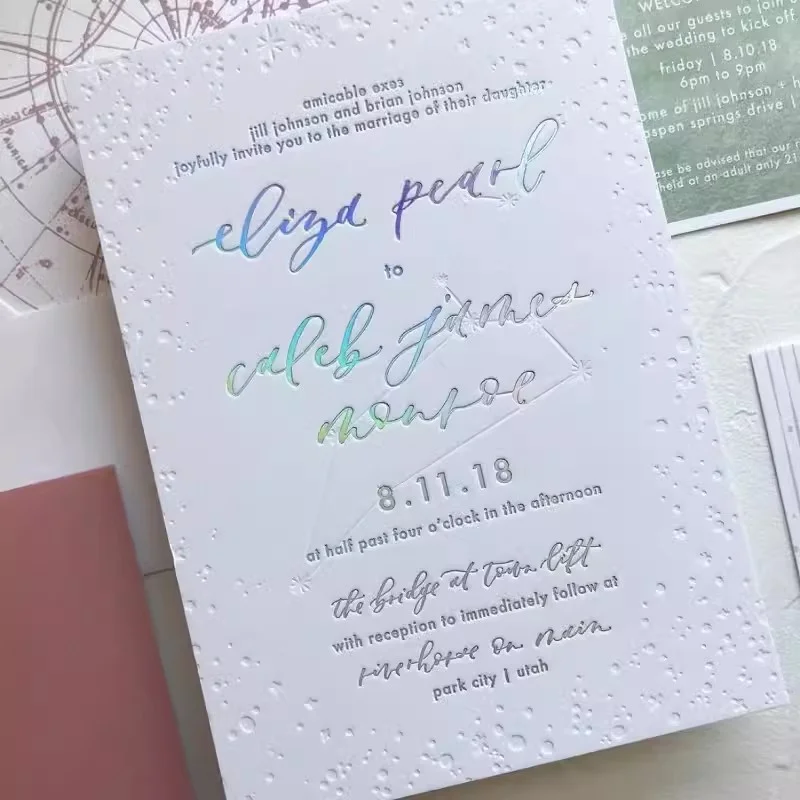 amicable exes
jill johnson and brian johnson
joyfully invite you to the marriage of their daughter
eliza pearl
to
caleb james
monroe
8.11.18
at half past four o'clock in the afternoon
the bridge at town lift
with reception to immediately follow at
riverhorse on main
park city | utah
all our guests to join
the wedding to kick off
friday | 8.10.18
6pm to 9pm
of jill johnson +
aspen springs drive |
be advised that our
held at an adult only 21